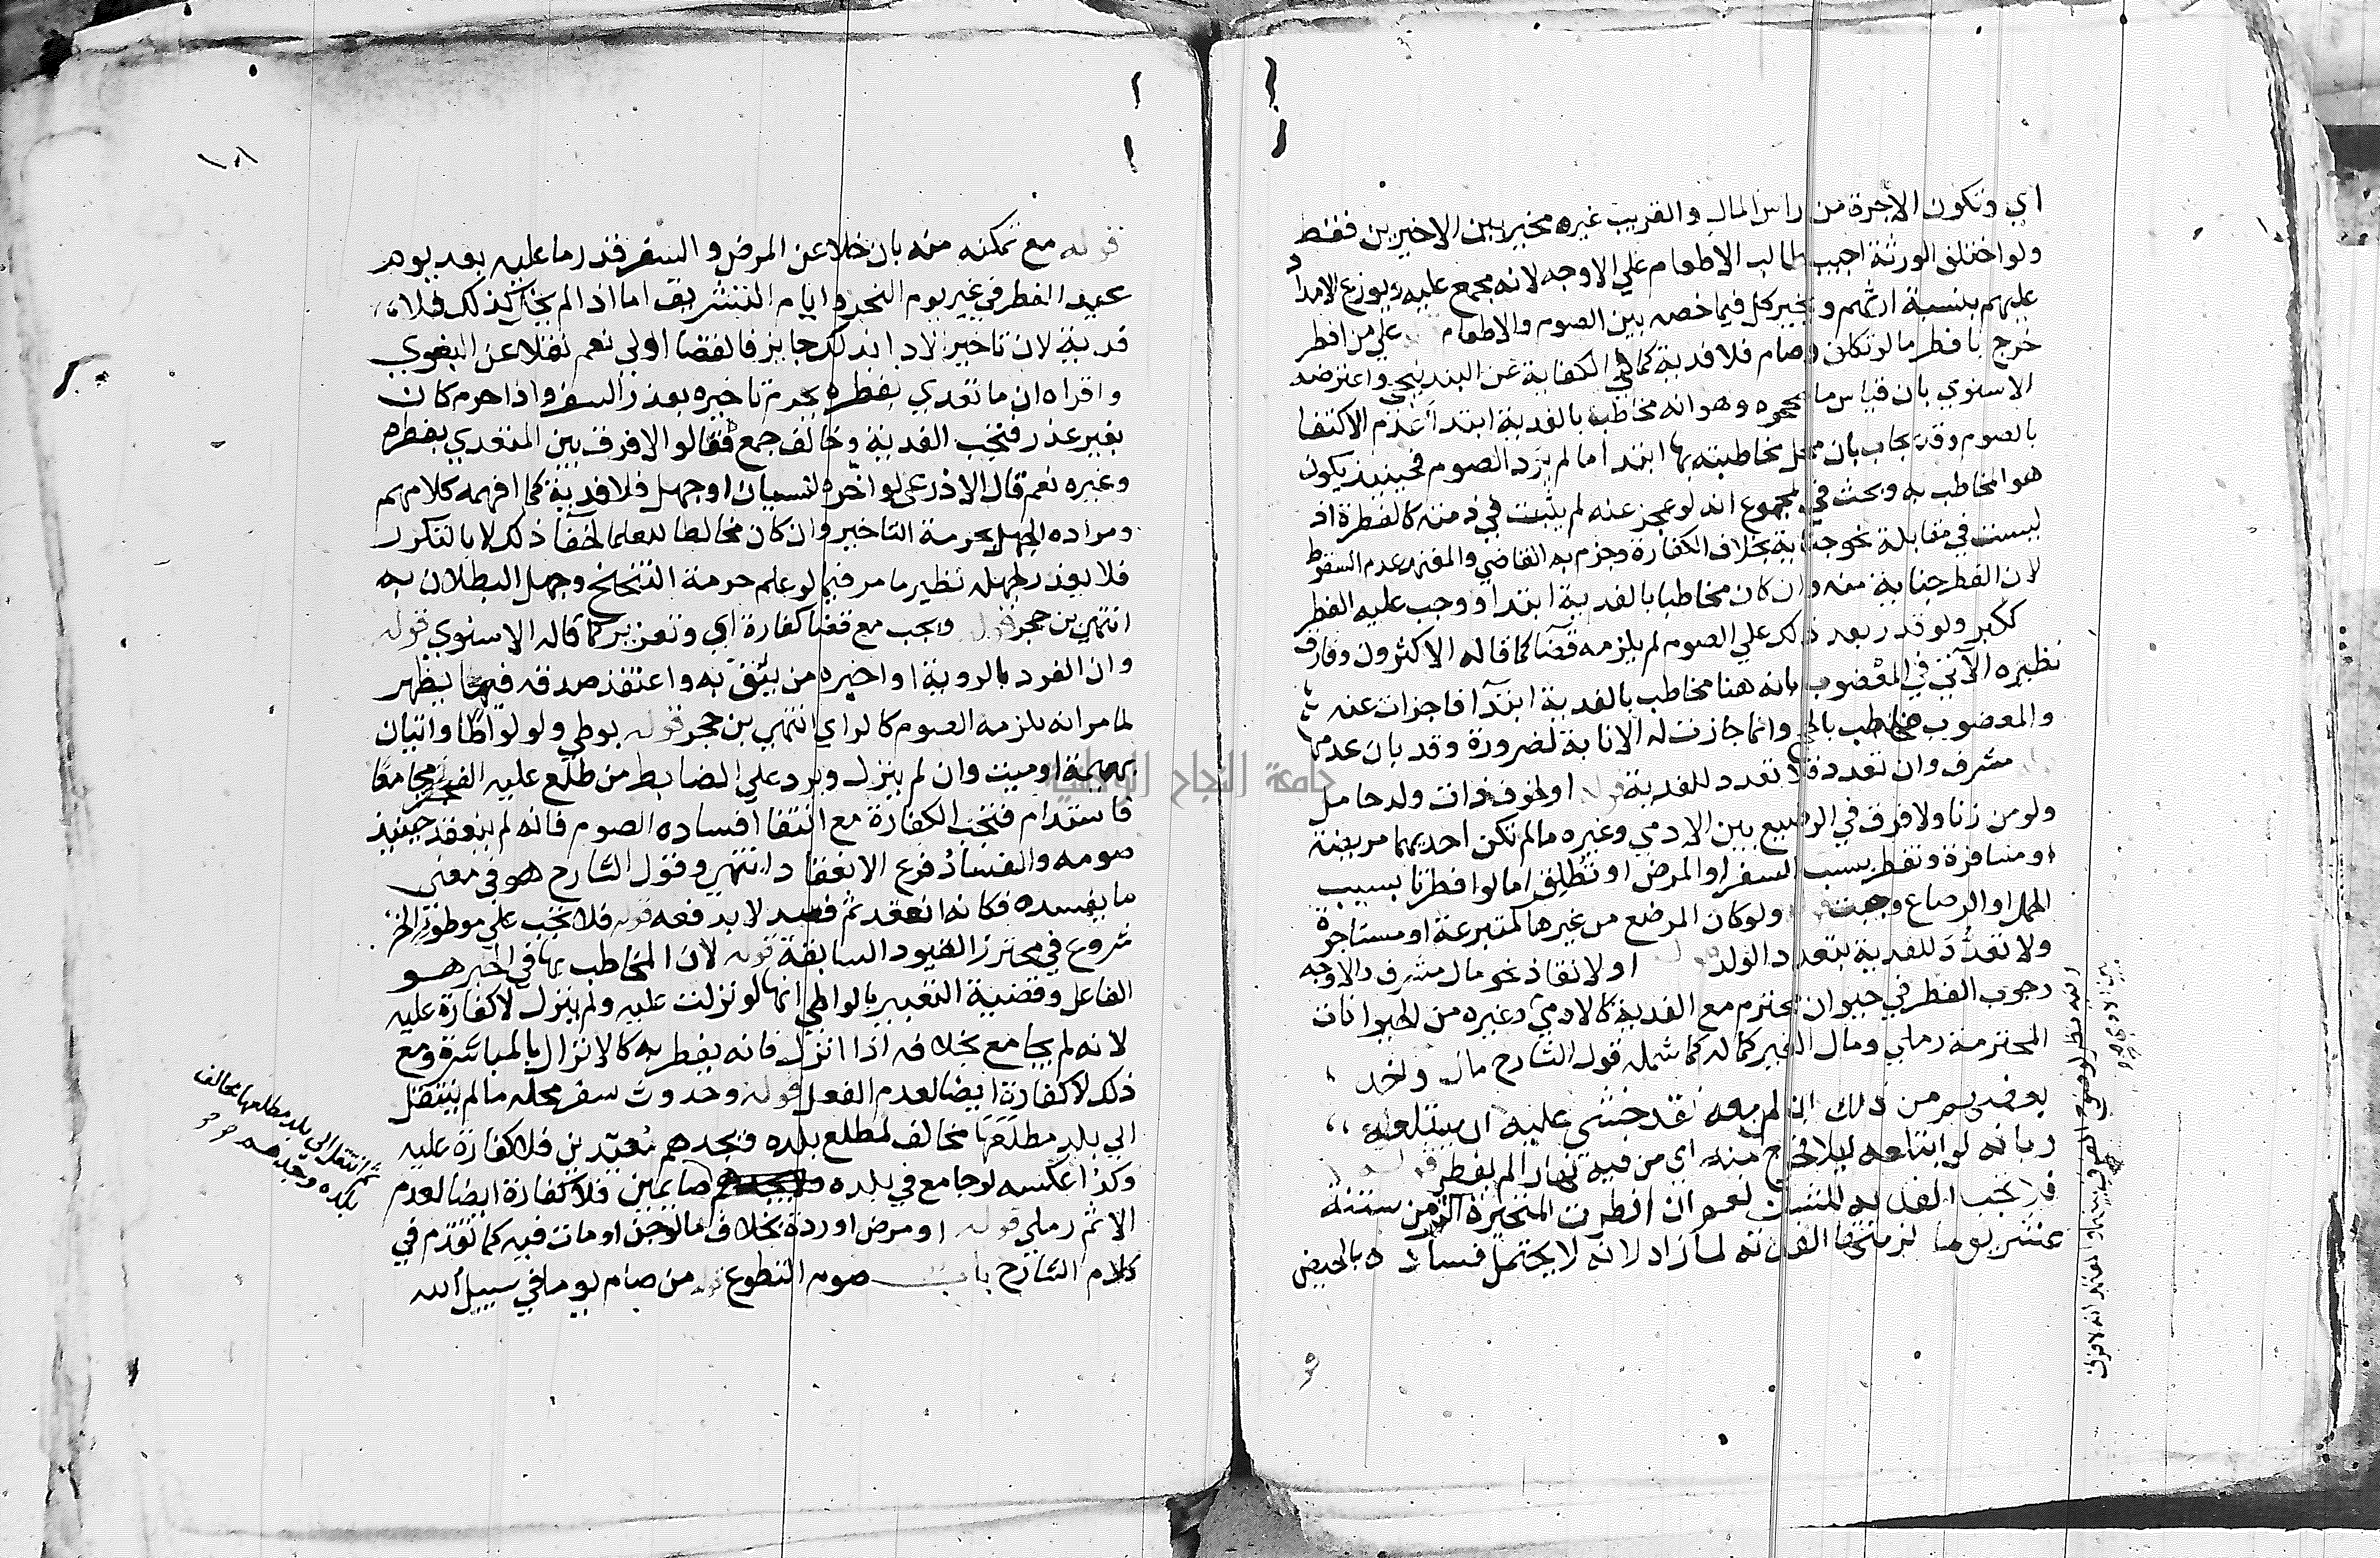 اي وتكون الاجرة من راس المال والقريب غيره مخير بين الاخيرين فقط
ولو اختلف الورثة اجيب طالب الاطعام علي الاوجه لانه مجمع عليه ويوزع الامداد
عليهم بنسبة ارثهم ويخير كل فيما خصه بين الصوم والاطعام علي من افطر
خرج بافطر ما لو تكلف وصام فلا فدية كما في الكفاية عن البندنيجي واعترضه
الاسنوي بان قياس ما صححوه وهو انه مخاطب بالفدية ابتدا عدم الاكتفا
بالصوم وقد يجاب بان محل مخاطبته بها ابتدا ما لم يرد الصوم فحينيذ يكون
هو المخاطب به وبحث في المجموع انه لو عجز عنه لم يثبت في ذمته كالفطرة اذ
ليست في مقابلة نحو جناية بخلاف الكفارة وجزم به القاضي والمعتمد عدم السقوط
لان الفطر جناية منه وان كان مخاطبا بالفدية ابتدا ووجب عليه الفطر
ككبر ولو قدر بعد ذلك علي الصوم لم يلزمه قضا كما قاله الاكثرون وفارق
نظيره الاتي في المعضوب بانه هنا مخاطب بالفدية ابتدا فاجزات عنه
والمعضوب مخاطب بالحج وانما جازت له الانابة لضرورة وقد بان عدمها
مشرف وان تعدد فلا تعدد للفدية قوله او لخوف ذات ولد حامل
ولو من زنا ولا فرق في الرضيع بين الادمي وغيره ما لم تكن احديهما مريضة
او مسافرة وتفطر بسبب السفر او المرض او تطلق اما لو افطرتا بسبب
الحمل او الرضاع وجبت ولو كان المرضع من غيرها كمتبرعة او مستاجرة
ولا تعدد للفدية بتعدد الولد قوله او لانقاذ نحو مال مشرف والاوجه
وجوب الفطر في حيوان محترم مع الفدية كالادمي وغيره من الحيوانات
المحترمة رملي ومال الغير كماله كما شمله قول الشارح مال
من ذلك ان لم نقد خشي عليه ان يبتلعه
لو ابتلعه ليلا فخرج منه اي من فيه نهارا لم يفطر قوله
فلا تجب الفدية نعم ان افطرت المتحيرة اكثر من ستة
عشر يوما لزمتها الفدية لما زاد لانه لا يحتمل فساده بالحيض
١٠١
قوله مع تمكنه منه بان خلا عن المرض والسفر قدر ما عليه بعد يوم
عيد الفطر في غير يوم النحر وايام التشريق اما اذا لم يخل كذلك فلا
فدية لان تاخير الاداء بذلك جايز فالقضا اولي نعم نقلا عن البغوي
واقراه ان ما تعدي بفطره يحرم تاخيره بعذر السفر واذا حرم كان
بغير عذر فتجب الفدية وخالف جمع فقالوا لا فرق بين المتعدي بفطره
وغيره نعم قال الاذرعي لو اخره لنسيان او جهل فلا فدية كما افهمه كلامهم
ومراده الجهل بحرمة التاخير وان كان مخالطا للعلما لخفا ذلك لا بالتكرر
فلا يعذر لجهله نظير ما مر فيما لو علم حرمة التنحنح وجهل البطلان به
انتهي بن حجر قوله ويجب مع قضا كفارة اي وتعزير كما قاله الاسنوي قوله
وان انفرد بالروية او اخبره من يثق به واعتقد صدقه فيما يظهر
لما مر انه يلزمه الصوم كالراي انتهي بن حجر قوله بوطي ولو لواطا واتيان
بهيمة او ميت وان لم ينزل ويرد علي الضابط من طلع عليه الفجر مجامعا
فاستدام فتجب الكفارة مع انتفا افساده الصوم فانه لم ينعقد حينيذ
صومه والفساد فرع الانعقاد انتهي وقول الشارح هو في معني
ما يفسده فكانه انعقد ثم فسد لا يدفعه قوله فلا تجب علي موطوة الخ
شروع في محترز القيود السابقة قوله لان المخاطب بها في الخبر هو
الفاعل وقضية التعبير بالواطي انها لو نزلت عليه ولم ينزل لا كفارة عليه
لانه لم يجامع بخلافه اذا انزل فانه يفطر به كالانزال بالمباشرة ومع
ذلك لا كفارة ايضا لعدم الفعل قوله وحدوث سفر محله ما لم ينتقل
الي بلد مطلعها مخالف لمطلع بلده فيجدهم معيدين فلا كفارة عليه
وكذا عكسه لو جامع في بلده صايمين فلا كفارة ايضا لعدم
الاثم رملي قوله او مرض او ردة بخلاف ما لو جن او مات فيه كما تقدم في
كلام الشارح باب صوم التطوع قوله من صام يوما في سبيل الله
ثم انتقل الي بلد مطلعها مخالف
بلده وجدهم